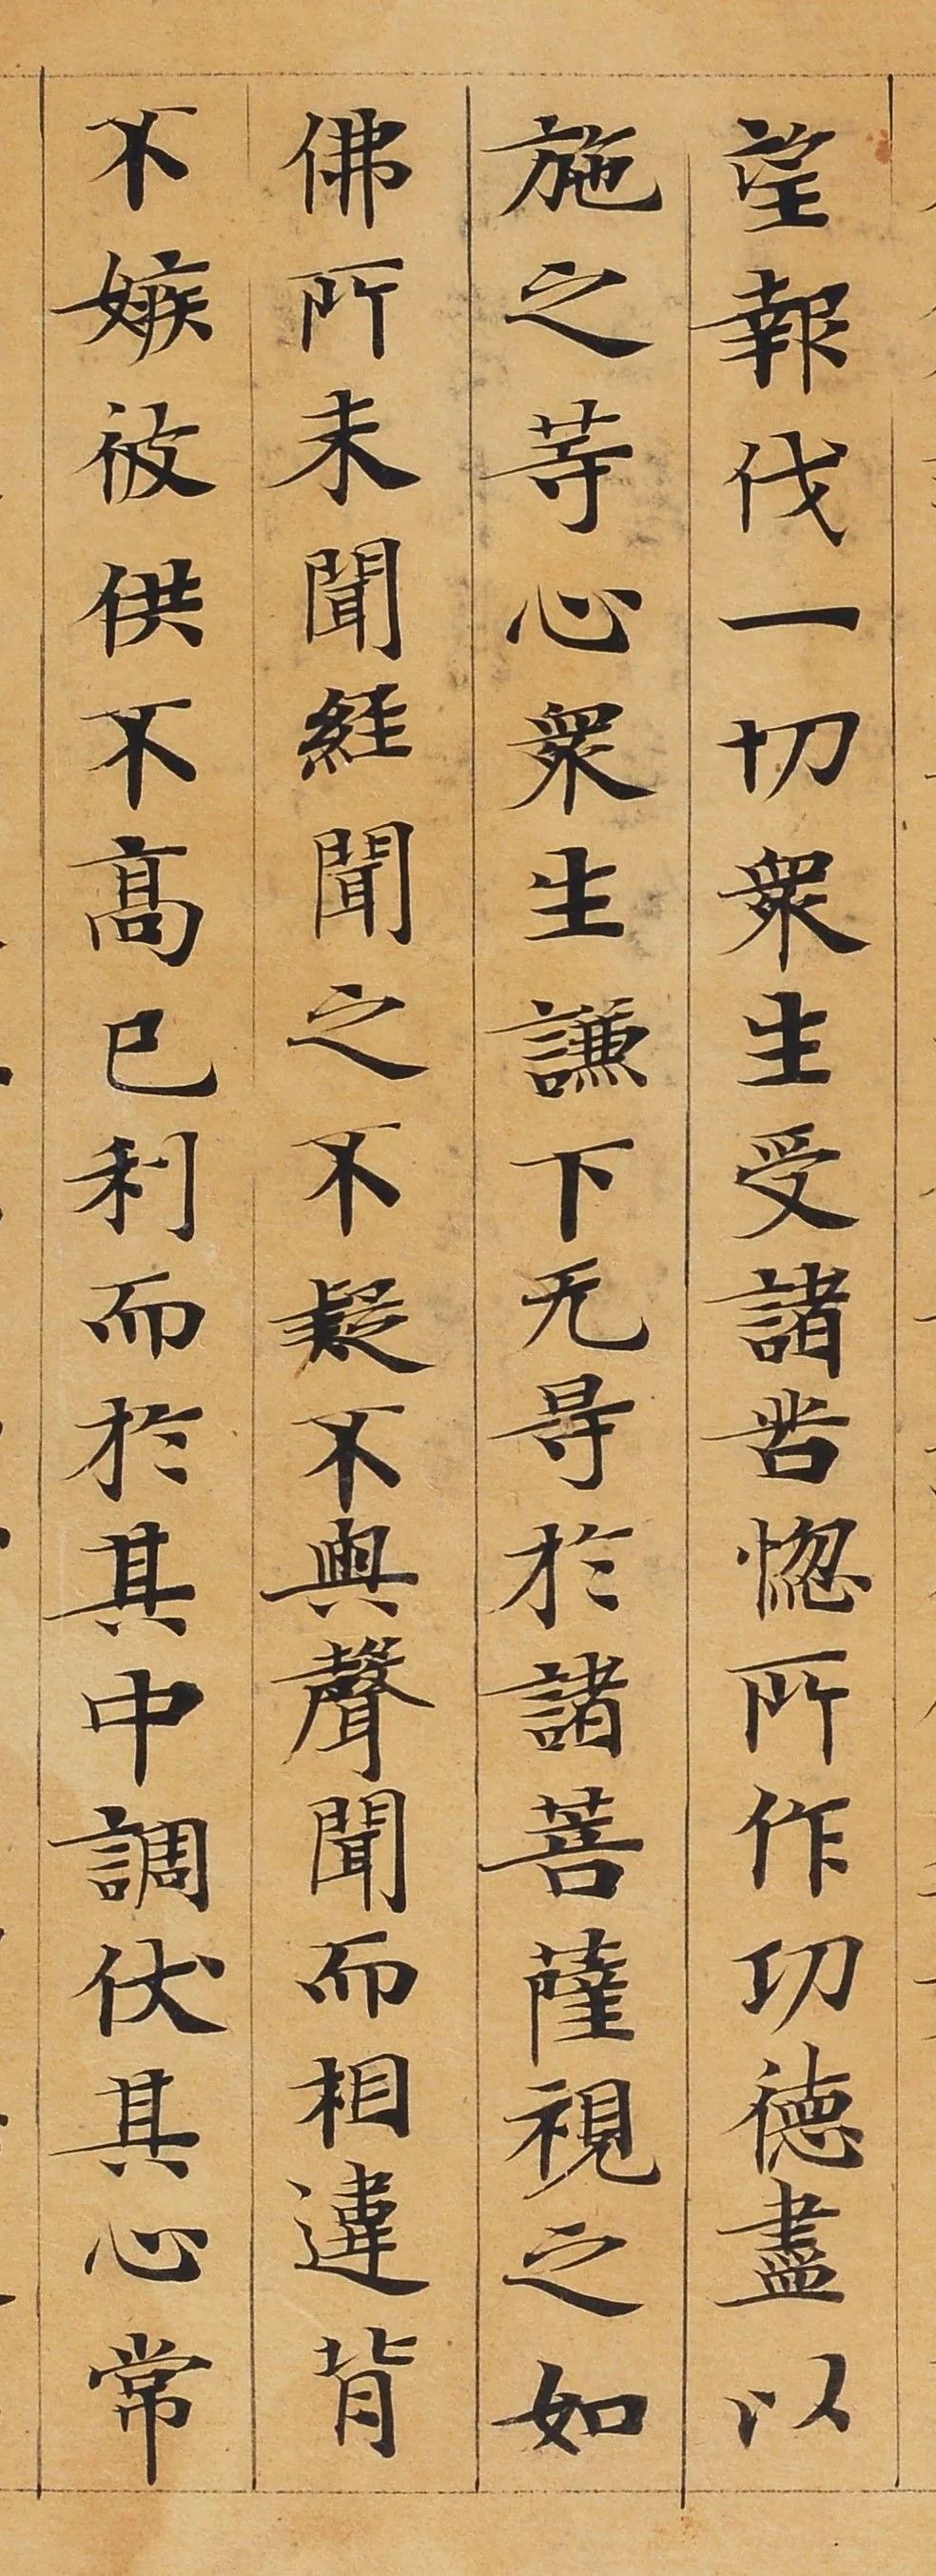 望報伐一切衆生受諸苦惱所作功德盡以
施之等心衆生謙下无㝵於諸菩薩視之如
佛所未聞經聞之不疑不與聲聞而相違背
不嫉彼供不高已利而於其中調伏其心常